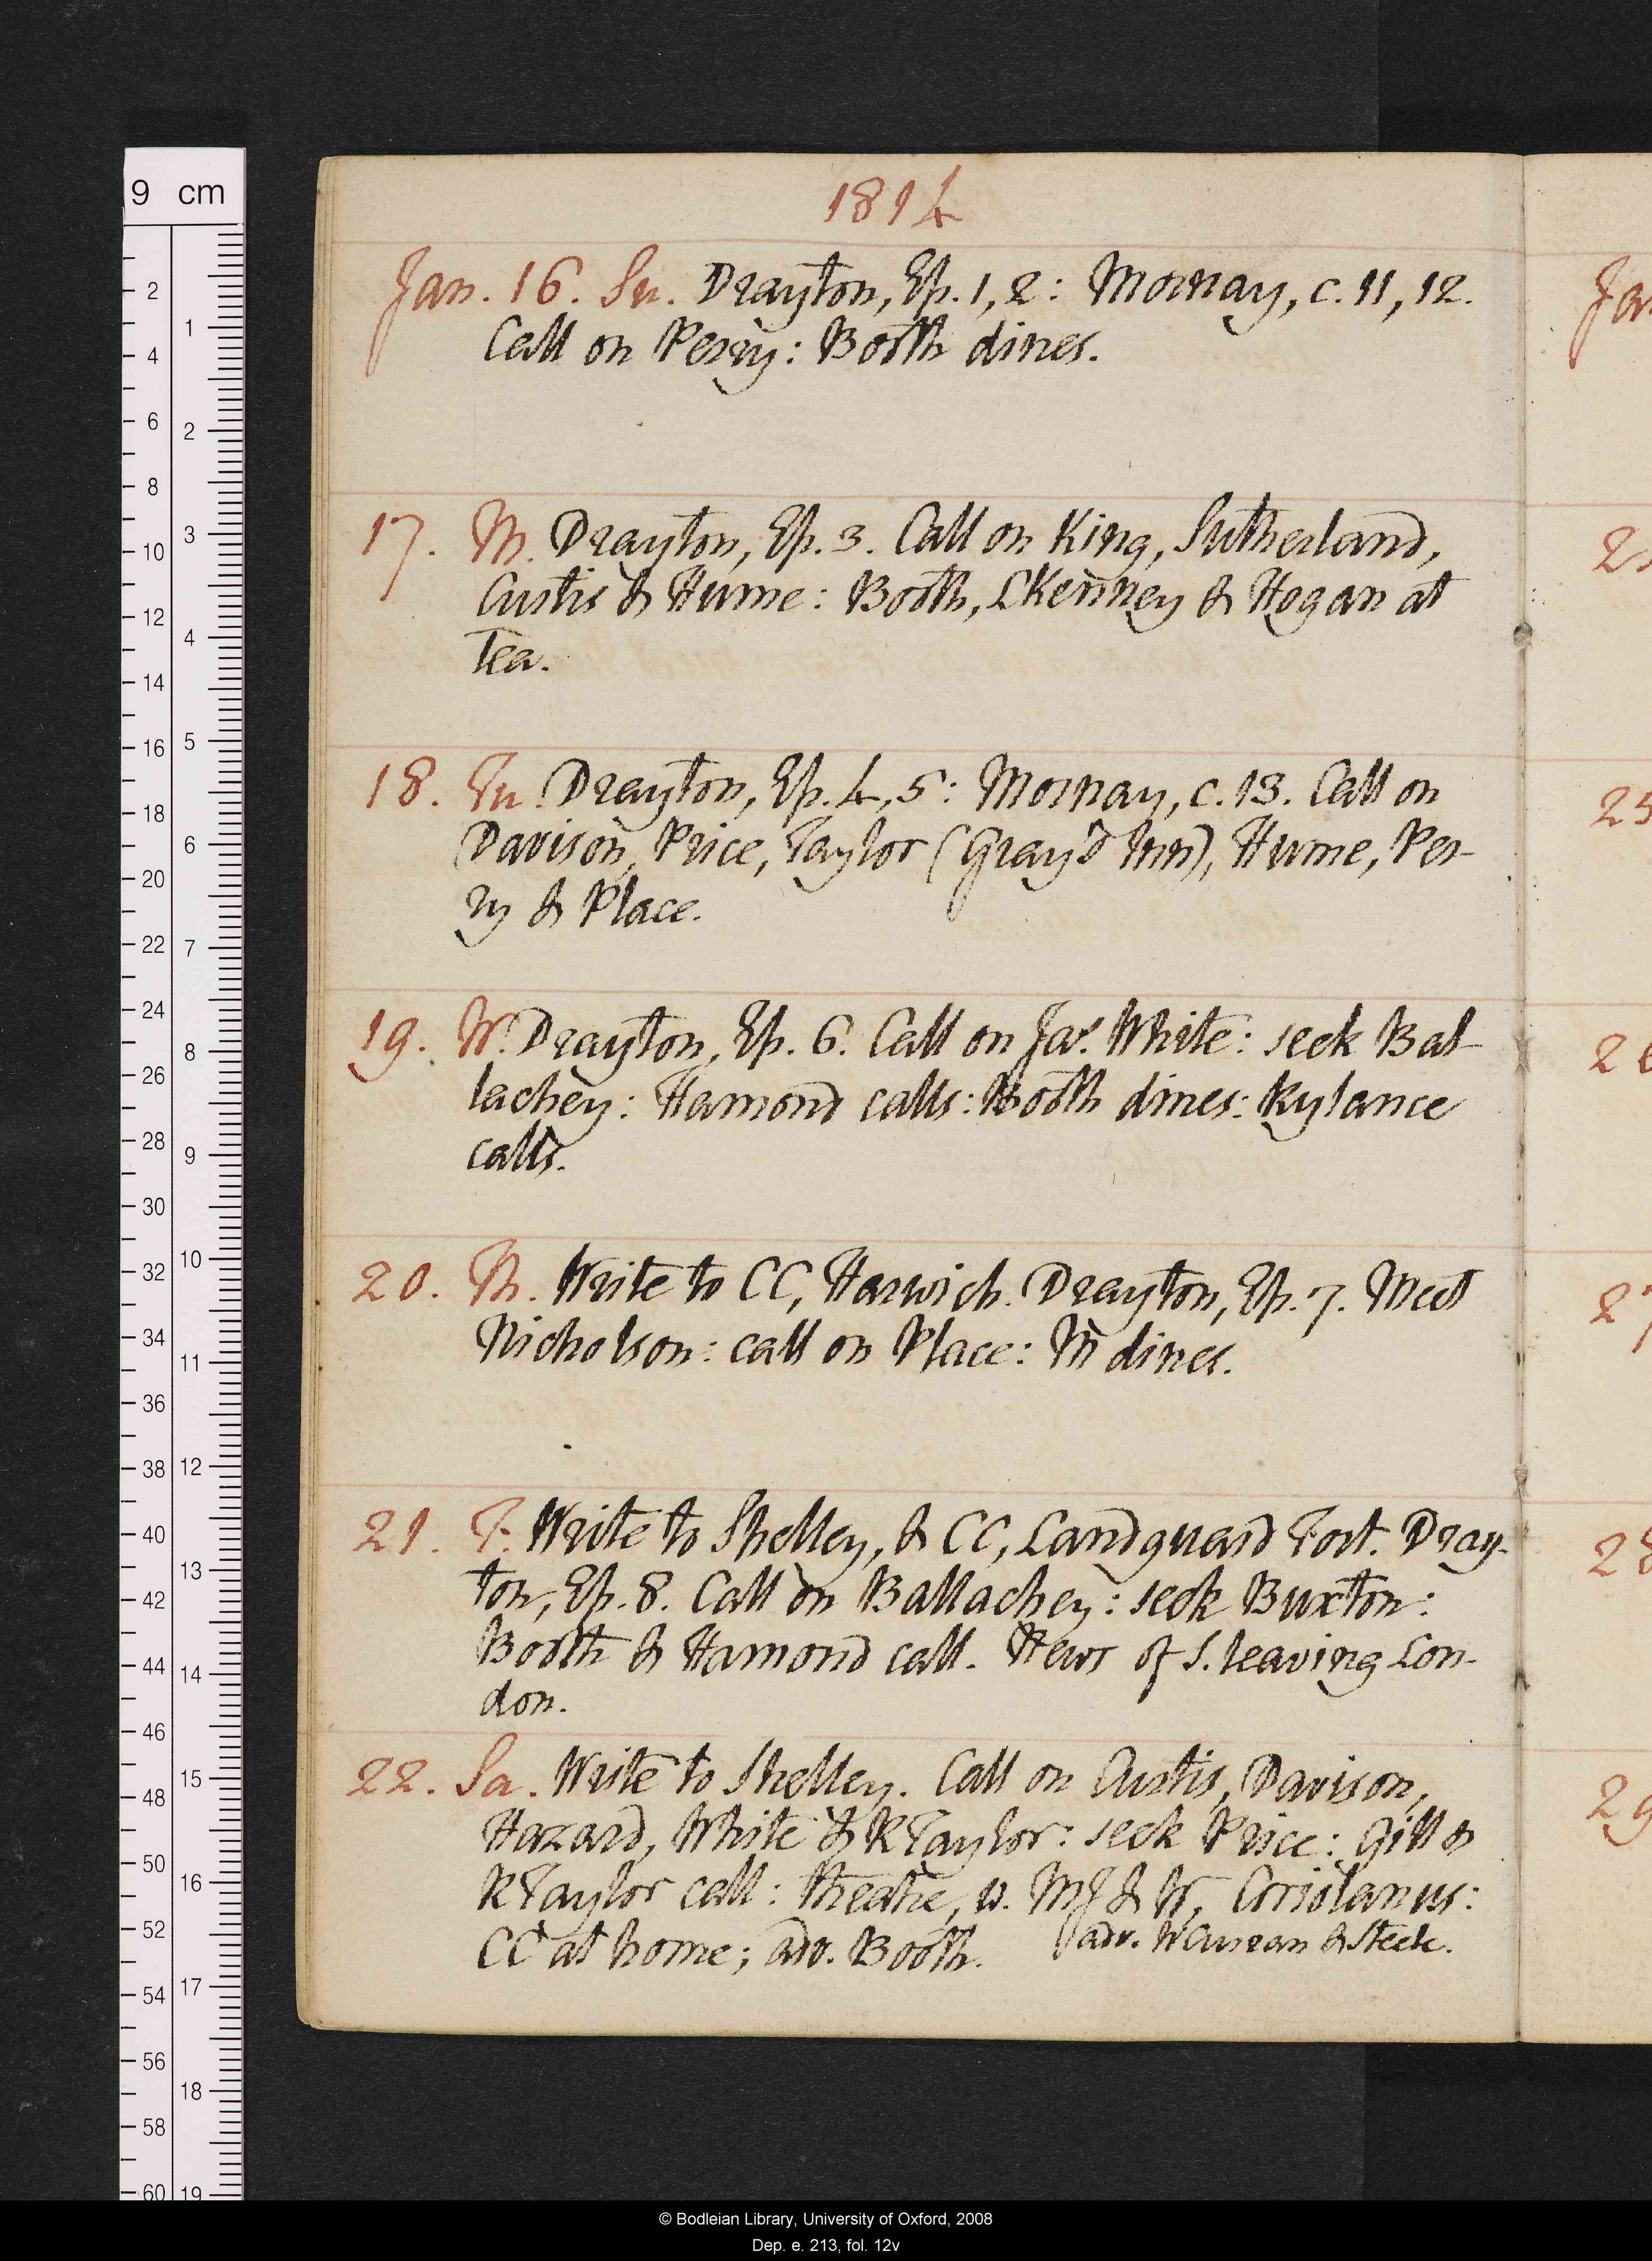 9 cm
1814
Jan. 16. Su. Drayton, Ep. 1, 2: Mornay, c. 11, 12.
Call on Perry: Booth dines.
17. M. Drayton, Ep. 3. Call on King, Sutherland,
Curtis & Hume: Booth, LKenney & Hogan at
tea.
18. Tu. Drayton, Ep. 4, 5: Mornay, c. 13. Call on
Davison, Price, Taylor (Gray's Inn), Hume, Per-
ry & Place.
19. W. Drayton, Ep. 6. Call on Jas. White: seek Bal-
lachey: Hamond calls: Booth dines: Rylance
calls.
20. Th. Write to CC, Harwich. Drayton, Ep. 7. Meet
Nicholson: call on Place: M dines.
21. F. Write to Shelley, & CC, Landguard Fort. Dray-
ton, Ep. 8. Call on Ballachey: seek Buxton:
Booth & Hamond call. News of S. leaving Lon-
don.
22. Sa. Write to Shelley. Call on Curtis, Davison,
Hazard, White & RTaylor: seek Price: Gill &
RTaylor call: theatre, w. MJ & W, Coriolanus:
CC at home; adv. Booth. adv. WCurran & Steele.
© Bodleian Library, University of Oxford, 2008
Dep. e. 213, fol. 12v